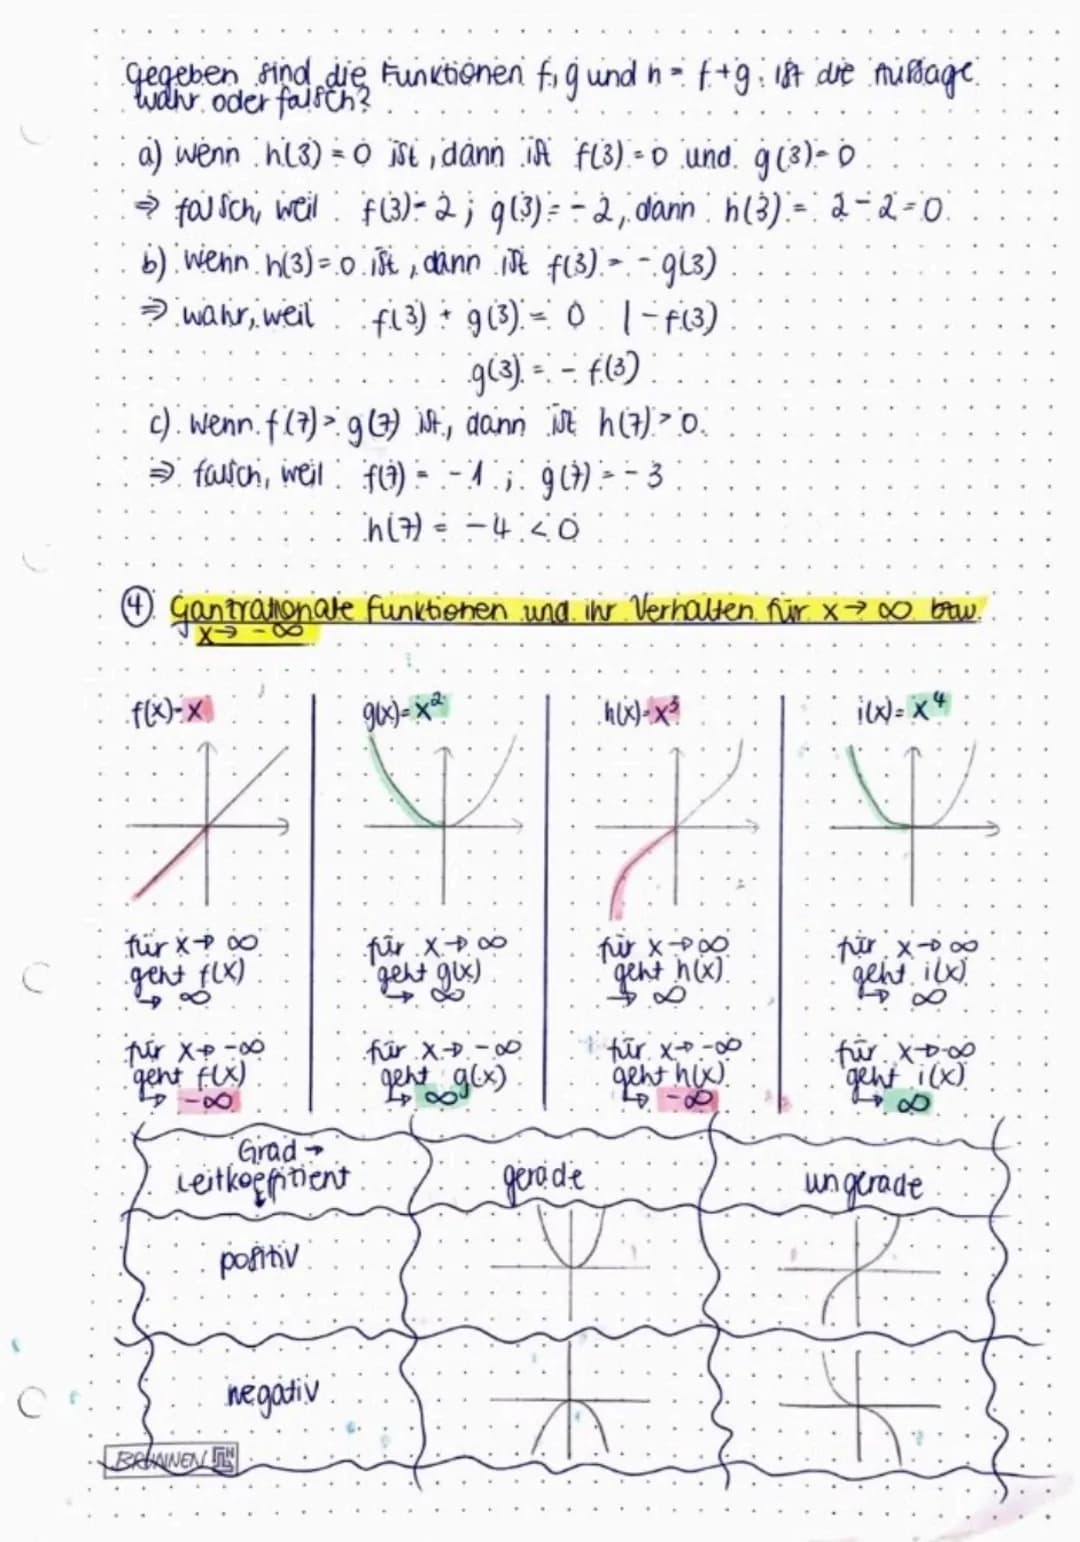 Gegeben sind die Funktionen f, g und h = f+g. ist die Aussage
wahr oder falsch?
a) wenn h(3) = 0 ist, dann ist f(3) = 0 und g(3) = 0
⇒ falsch, weil f(3) = 2 ; g(3) = -2, dann h(3) = 2 - 2 = 0
b) wenn h(3) = 0 ist, dann ist f(3) = - g(3)
⇒ wahr, weil f(3) + g(3) = 0 | - f(3)
g(3) = - f(3)
c) wenn f(7) > g(7) ist, dann ist h(7) > 0.
⇒ falsch, weil f(7) = -1 ; g(7) = -3
h(7) = -4 < 0
④ Ganzrationale Funktionen und ihr Verhalten für x → ∞ bzw.
x → -∞
f(x) = x
g(x) = x²
h(x) = x³
i(x) = x⁴
für x → ∞
geht f(x)
↳ ∞
für x → -∞
geht f(x)
↳ -∞
für x → ∞
geht g(x)
↳ ∞
für x → -∞
geht g(x)
↳ ∞
für x → ∞
geht h(x)
↳ ∞
für x → -∞
geht h(x)
↳ -∞
für x → ∞
geht i(x)
↳ ∞
für x → -∞
geht i(x)
↳ ∞
Grad →
Leitkoeffitient
↓
gerade
ungerade
positiv
negativ
BRUNNEN